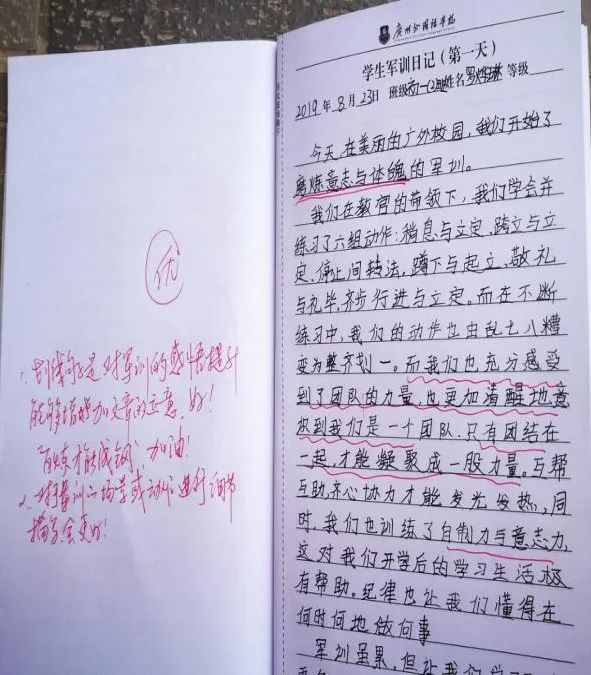 优
1、划线句子是对军训的感悟提升
能够增加文章的立意，好！
"百炼才能成钢"加油！
2、对军训的场景或动作进行细节
描写会更好！
广州外国语学校
学生军训日记（第一天）
2019年8月23日 班级初一(2)班姓名罗烨琳 等级
今天，在美丽的广外校园，我们开始了
磨炼意志与体魄的军训。
我们在教官的带领下，我们学会并
练习了六组动作：稍息与立定、跨立与立
定、停止间转法，蹲下与起立、敬礼
与礼毕、齐步行进与立定。而在不断
练习中，我们的动作也由乱七八糟
变为整齐划一。而我们也充分感受
到了团队的力量，也更加清醒地意
识到我们是一个团队.只有团结在
一起，才能凝聚成一股力量。互帮
互助齐心协力才能发光发热，同
时，我们也训练了自制力与意志力，
这对我们开学后的学习生活极
有帮助。纪律也让我们懂得在
何时何地做何事
军训虽累，但让我们学